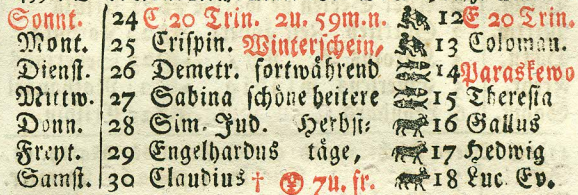 Sonnt. 24 C 20 Trin. 2u. 59m.n. 12 E 20 Trin.
Mont. 25 Crispin. Winterschein, 13 Coloman.
Dienst. 26 Demetr. fortwährend 14 Paraskewo
Mittw. 27 Sabina schöne heitere 15 Theresia
Donn. 28 Sim. Jud. Herbst: 16 Gallus
Freyt. 29 Engelhardus täge, 17 Hedwig
Samst. 30 Claudius † 7u. fr. 18 Luc. Ev.